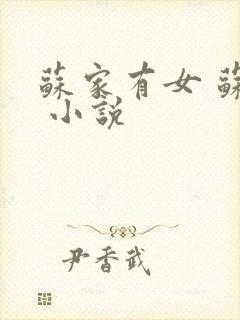 蘇家有女 蘇
小說
尹香武